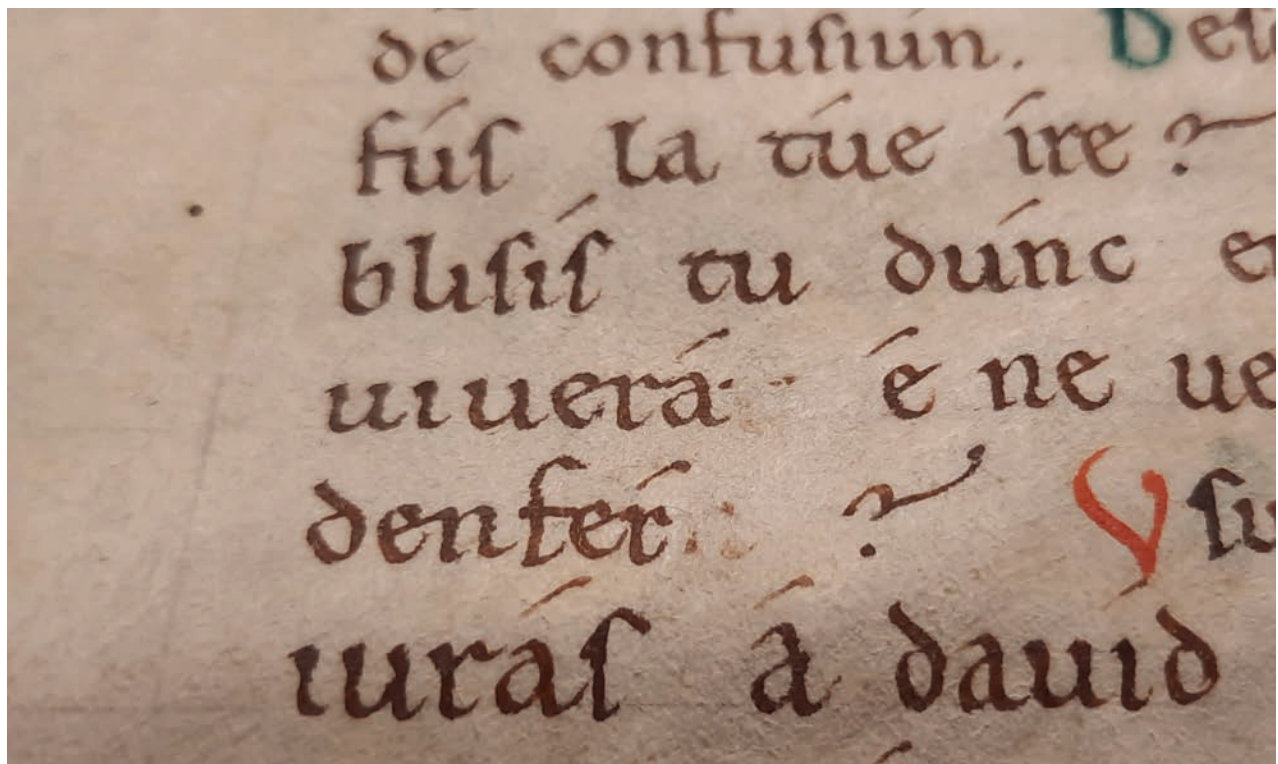 de confusiun. Des
fús la túe íre?
blisís tu dúnc en
uiuerá· é ne ue
denfér ? Vsu
iurás á dauíd